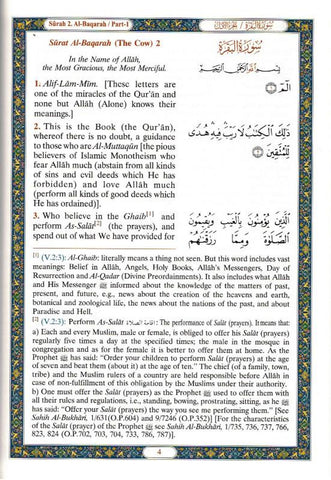 Sûrah 2. Al-Baqarah / Part-1
سورة البقرة ٢ / الجزء الأول ١
Sûrat Al-Baqarah (The Cow) 2
In the Name of Allâh,
the Most Gracious, the Most Merciful.
1. Alif-Lâm-Mîm. [These letters are
one of the miracles of the Qur'ân and
none but Allâh (Alone) knows their
meanings.]
2. This is the Book (the Qur'ân),
whereof there is no doubt, a guidance
to those who are Al-Muttaqûn [the pious
believers of Islamic Monotheism who
fear Allâh much (abstain from all kinds
of sins and evil deeds which He has
forbidden) and love Allâh much
(perform all kinds of good deeds which
He has ordained)].
3. Who believe in the Ghaib[1] and
perform As-Salât[2] (the prayers), and
spend out of what We have provided for
سُورَةُ البَقَرَةِ
بِسْمِ اللهِ الرَّحْمَنِ الرَّحِيمِ
الٓمٓ ۝١
ذَٰلِكَ الْكِتَٰبُ لَا رَيْبَ ۛ فِيهِ ۛ هُدًى
لِّلْمُتَّقِينَ ۝٢
الَّذِينَ يُؤْمِنُونَ بِالْغَيْبِ وَيُقِيمُونَ
الصَّلَوٰةَ وَمِمَّا رَزَقْنَٰهُمْ
[1] (V.2:3): Al-Ghaib: literally means a thing not seen. But this word includes vast
meanings: Belief in Allâh, Angels, Holy Books, Allâh's Messengers, Day of
Resurrection and Al-Qadar (Divine Preordainments). It also includes what Allâh
and His Messenger ﷺ informed about the knowledge of the matters of past,
present, and future, e.g., news about the creation of the heavens and earth,
botanical and zoological life, the news about the nations of the past, and about
Paradise and Hell.
[2] (V.2:3): Perform As-Salât إقامة الصلاة : The performance of Salât (prayers). It means that:
a) Each and every Muslim, male or female, is obliged to offer his Salât (prayers)
regularly five times a day at the specified times; the male in the mosque in
congregation and as for the female it is better to offer them at home. As the
Prophet ﷺ has said: "Order your children to perform Salât (prayers) at the age
of seven and beat them (about it) at the age of ten." The chief (of a family, town,
tribe) and the Muslim rulers of a country are held responsible before Allâh in
case of non-fulfillment of this obligation by the Muslims under their authority.
b) One must offer the Salât (prayers) as the Prophet ﷺ used to offer them with
all their rules and regulations, i.e., standing, bowing, prostrating, sitting, as he ﷺ
has said: "Offer your Salât (prayers) the way you see me performing them." [See
Sahih Al-Bukhâri, 1/631(O.P.604) and 9/7246 (O.P.352)] [For the characteristics
of the Salât (prayer) of the Prophet ﷺ see Sahih Al-Bukhâri, 1/735, 736, 737, 766,
823, 824 (O.P.702, 703, 704, 733, 786, 787)].
4